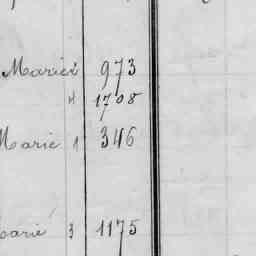 Marie 2 973
4 1708
Marie 1 346
Marie 3 1175